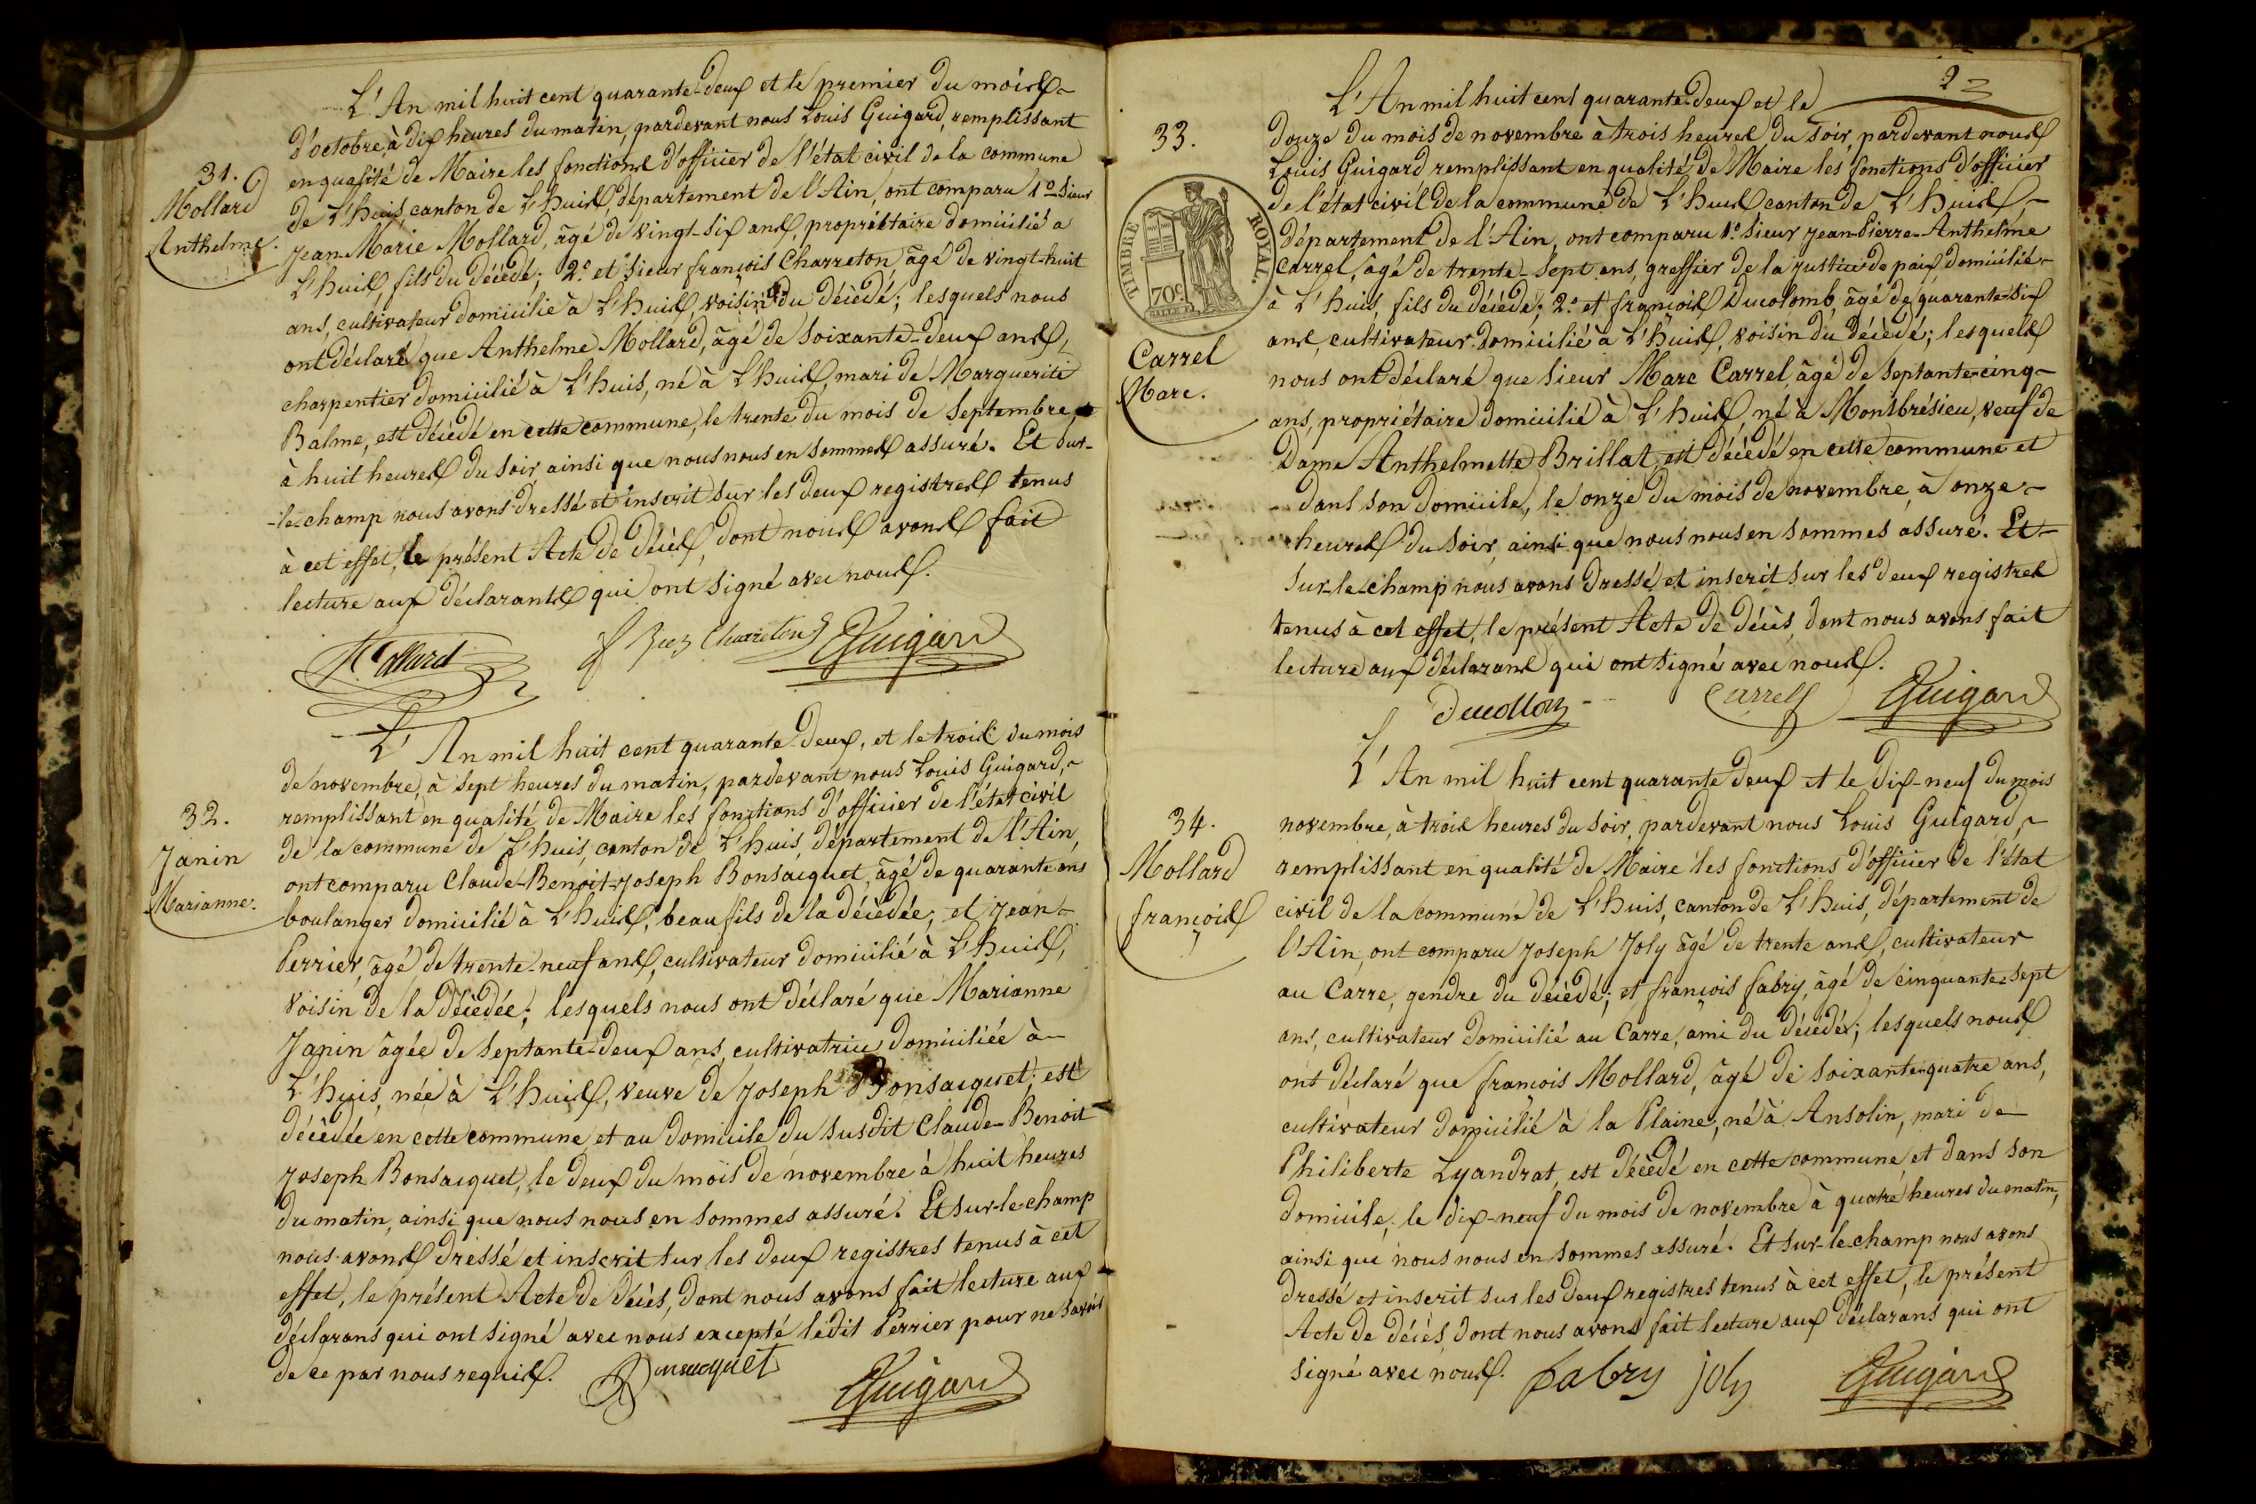 31.
Mollard
Anthelme.
L'An mil huit cent quarante-deux et le premier du mois
d'octobre, à dix heures du matin, pardevant nous Louis Guigard, remplissant
en qualité de Maire les fonctions d'officier de l'état civil de la commune
de L'huis, canton de L'huis, département de l'Ain, ont comparu 1º Sieur
Jean-Marie Mollard, âgé de vingt-six ans, propriétaire domicilié à
L'huis, fils du décédé; 2º et Sieur françois Charreton âgé de vingt-huit
ans, cultivateur domicilié à L'huis, voisin du décédé; lesquels nous
ont déclaré que Anthelme Mollard, âgé de soixante-deux ans,
charpentier domicilié à L'huis, né à L'huis, mari de Marguerite
Balme, est décédé en cette commune, le trente du mois de Septembre
à huit heures du soir, ainsi que nous nous en sommes assuré. Et sur-
-le-champ nous avons dressé et inscrit sur les deux registres tenus
à cet effet, le présent Acte de décès, dont nous avons fait
lecture aux déclarants qui ont signé avec nous.
Mollard Charreton Guigard
32.
Janin
Marianne.
L'An mil huit cent quarante-deux, et le trois du mois
de novembre, à sept heures du matin, pardevant nous Louis Guigard,
remplissant en qualité de Maire les fonctions d'officier de l'état civil
de la commune de L'huis, canton de L'huis, département de l'Ain,
ont comparu Claude-Benoit-Joseph Bonsacquet, âgé de quarante ans
boulanger domicilié à L'huis, beau fils de la décédée; et Jean
Perrier, âgé de trente-neuf ans, cultivateur domicilié à L'huis,
voisin de la décédée; lesquels nous ont déclaré que Marianne
Janin âgée de septante-deux ans, cultivatrice domiciliée à
L'huis, née à L'huis, veuve de Joseph Bonsacquet, est
décédée en cette commune et au domicile du susdit Claude-Benoit
Joseph Bonsacquet, le deux du mois de novembre à huit heures
du matin, ainsi que nous nous en sommes assuré. Et sur-le-champ
nous avons dressé et inscrit sur les deux registres tenus à cet
effet, le présent Acte de décès, dont nous avons fait lecture aux
déclarans qui ont signé avec nous excepté ledit Perrier pour ne savoir
de ce par nous requis. Bonsacquet Guigard
23
33.
TIMBRE ROYAL.
70c
Carrel
Marc.
L'An mil huit cent quarante-deux et le
douze du mois de novembre à trois heures du soir, pardevant nous
Louis Guigard remplissant en qualité de Maire les fonctions d'officier
de l'état civil de la commune de L'huis canton de L'huis
département de l'Ain, ont comparu 1º Sieur Jean-Pierre-Anthelme
Carrel, âgé de trente-sept ans, greffier de la justice de paix domicilié
à L'huis, fils du décédé; 2º et françois Ducolomb, âgé de quarante-six
ans, cultivateur domicilié à L'huis, voisin du décédé; lesquels
nous ont déclaré que Sieur Marc Carrel, âgé de septante-cinq
ans, propriétaire domicilié à L'huis, né à Montbrésieu, veuf de
Dame Anthelmette Brillat, est décédé en cette commune et
dans son domicile, le onze du mois de novembre, à onze
heures du soir, ainsi que nous nous en sommes assuré. Et
sur-le-champ nous avons dressé et inscrit sur les deux registres
tenus à cet effet, le présent Acte de décès, dont nous avons fait
lecture aux déclarans qui ont signé avec nous.
Carrel Guigard
34.
Mollard
françois
L'An mil huit cent quarante deux et le dix-neuf du mois
novembre, à trois heures du soir, pardevant nous Louis Guigard,
remplissant en qualité de Maire les fonctions d'officier de l'état
civil de la commune de L'huis, canton de L'huis, département de
l'Ain, ont comparu Joseph Joly âgé de trente ans, cultivateur
au Carre, gendre du décédé; et françois fabry, âgé de cinquante-sept
ans, cultivateur domicilié au Carre, ami du décédé; lesquels nous
ont déclaré que françois Mollard, âgé de soixante-quatre ans,
cultivateur domicilié à la Plaine, né à Ansolin, mari de
Philiberte Lyandrat, est décédé en cette commune et dans son
domicile, le dix-neuf du mois de novembre à quatre heures du matin,
ainsi que nous nous en sommes assuré. Et sur-le-champ nous avons
dressé et inscrit sur les deux registres tenus à cet effet, le présent
Acte de décès, dont nous avons fait lecture aux déclarans qui ont
signé avec nous. fabry joly Guigard